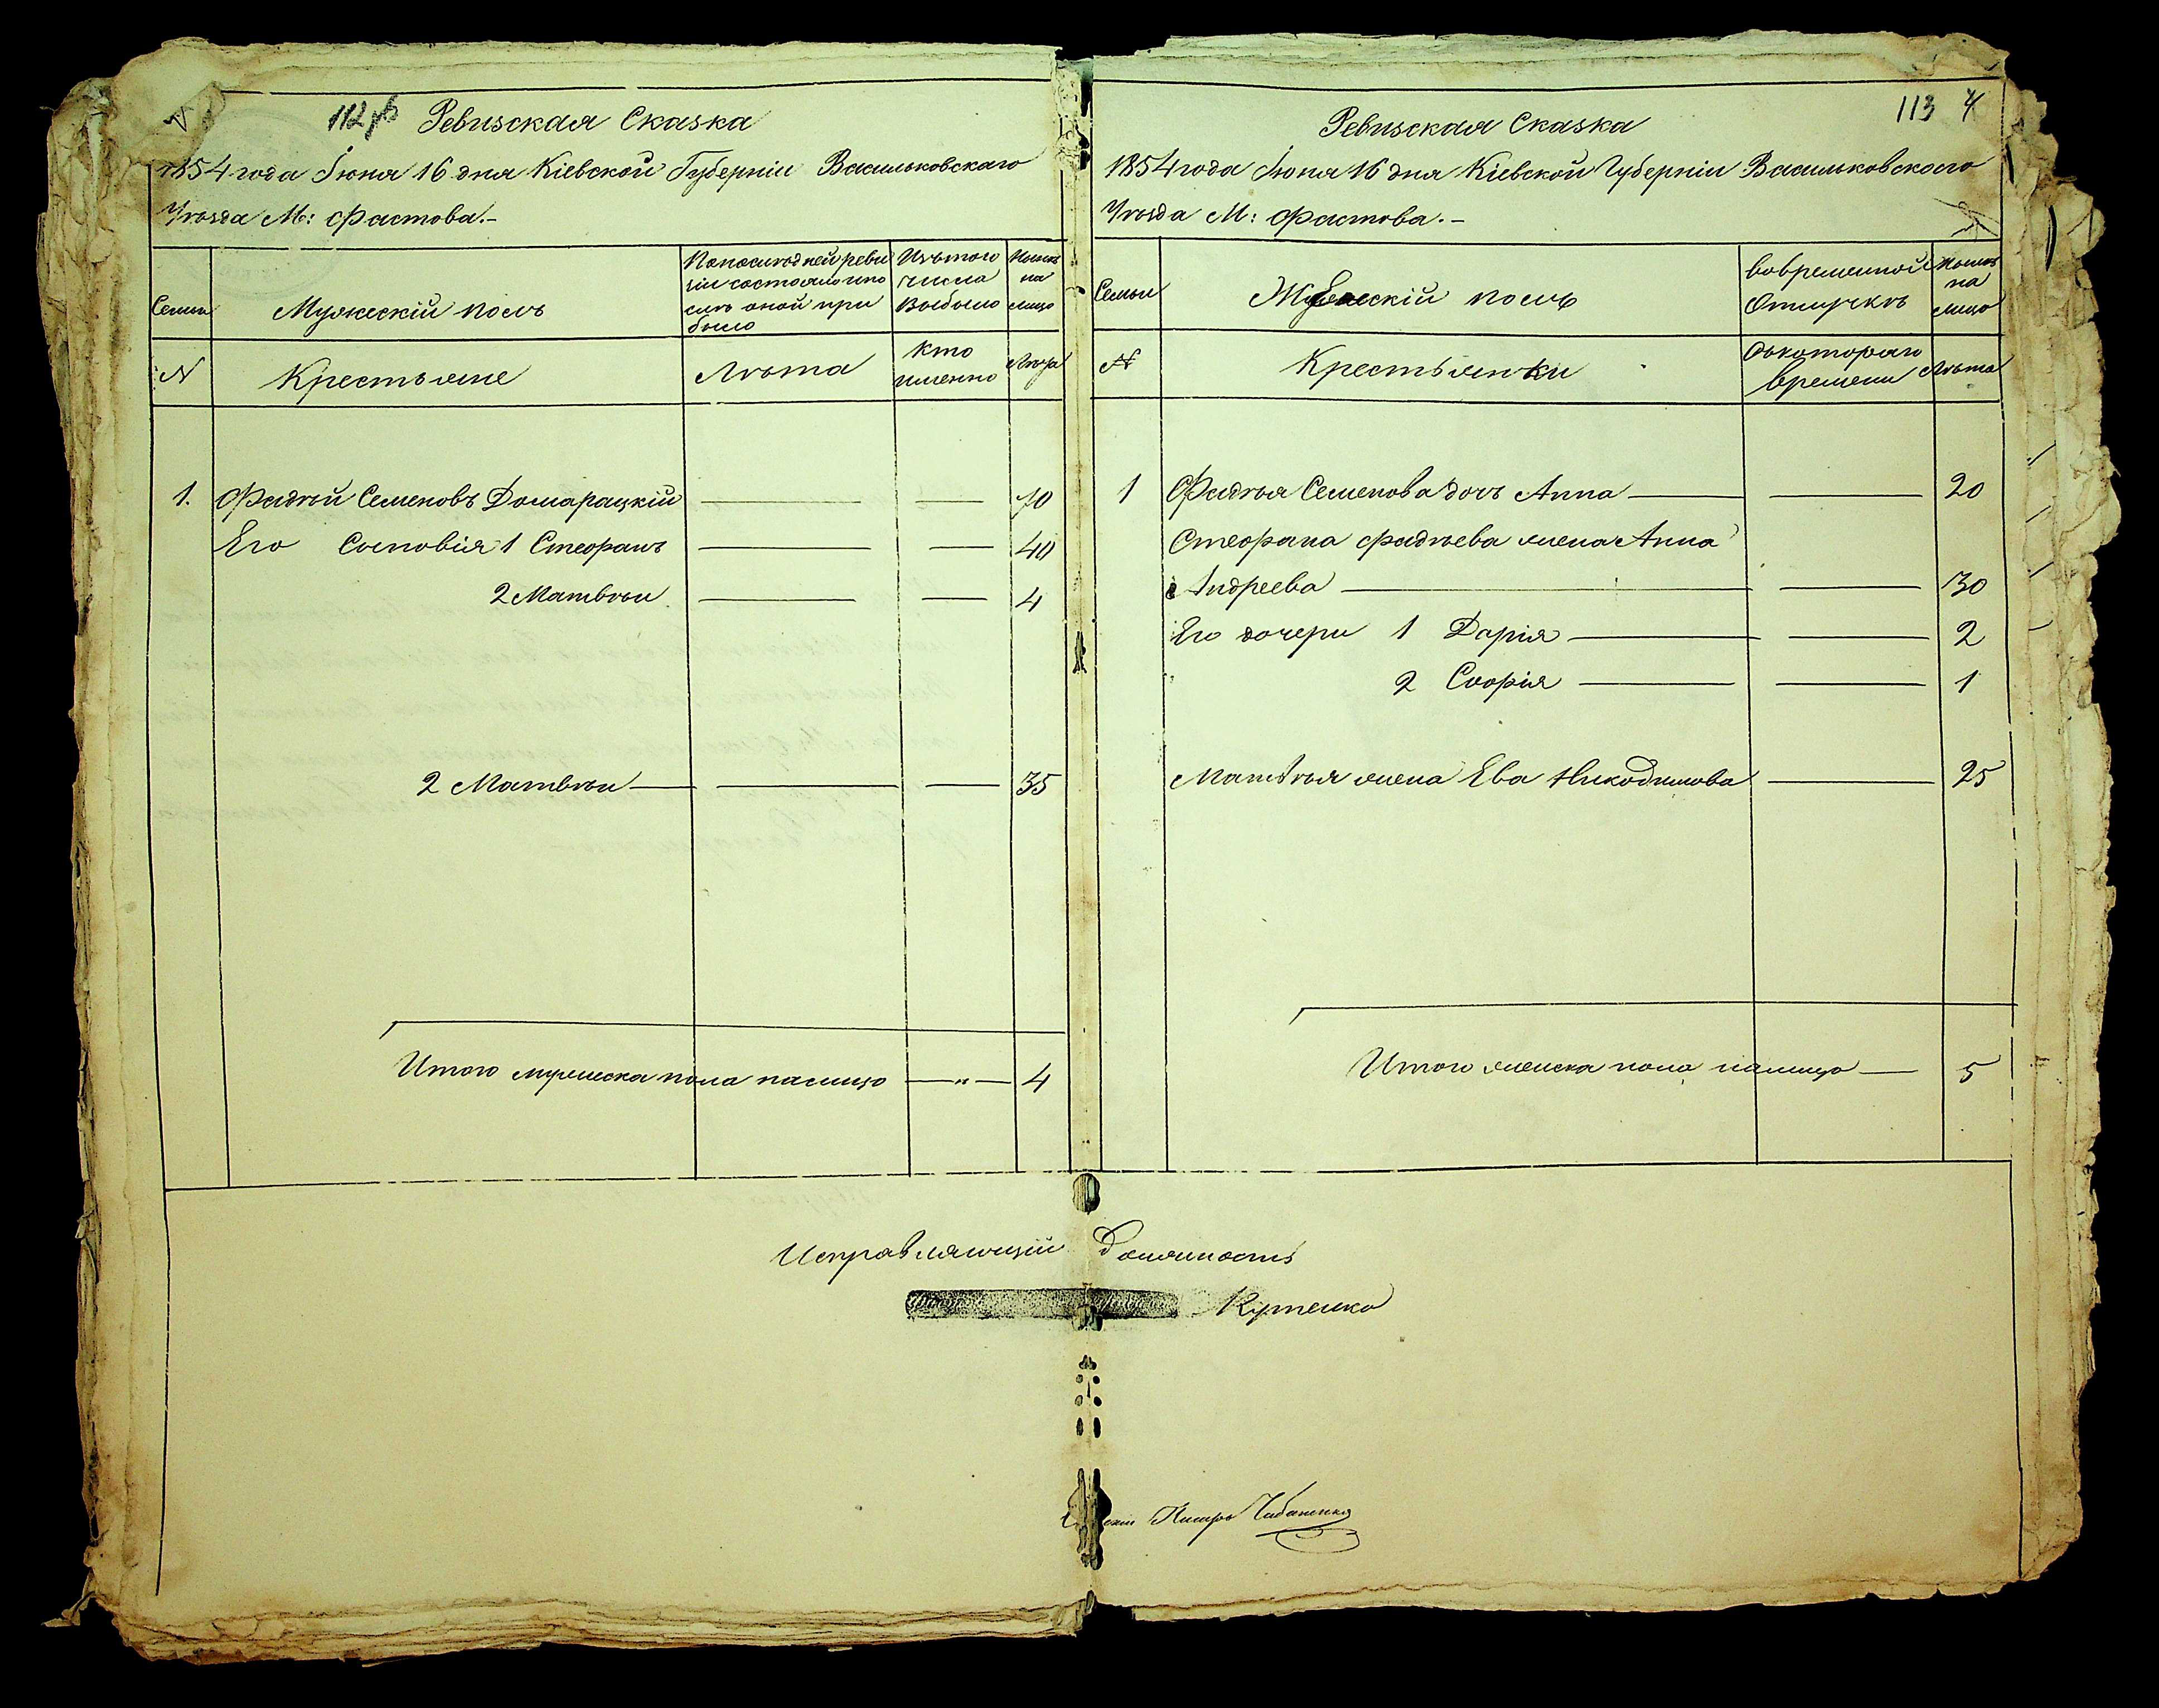 112 об
Ревизская Сказка
1854 года Іюня 16 дня Кіевской Губерніи Васильковскаго
Уѣзда М: Фастова.-
Семьи
Мужескій полъ
По последней реви
зіи состояло и по
слѣ оной при
было
Изъ того
числа
Выбыло
Нынѣ
на
лицо
N
Крестьяне
Лѣта
Кто
именно
Лѣта
1. Фадѣй Семеновъ Домарацкій 70
Его Сыновія 1 Стефанъ 40
2 Матвѣи 4
2 Матвѣи 35
Итого мужеска пола налицо 4
113 4
Ревизская Сказка
1854 года Іюня 16 дня Кіевской Губерніи Васильковскаго
Уѣзда М: Фастова.-
Семьи
Женскій полъ
Во временной
Отлучкѣ
Нынѣ
на
лицо
N
Крестьянки
Съ котораго
времени
Лѣта
1 Фадѣя Семенова дочь Анна 20
Стефана Фадѣева жена Анна
Андреева 30
Его дочери 1 Дарія 2
2 Софія 1
Матвѣя жена Ева Никодимова 25
Итого женска пола налицо 5
Исправляющій Должность
Куценко
Писарь Чабаненко